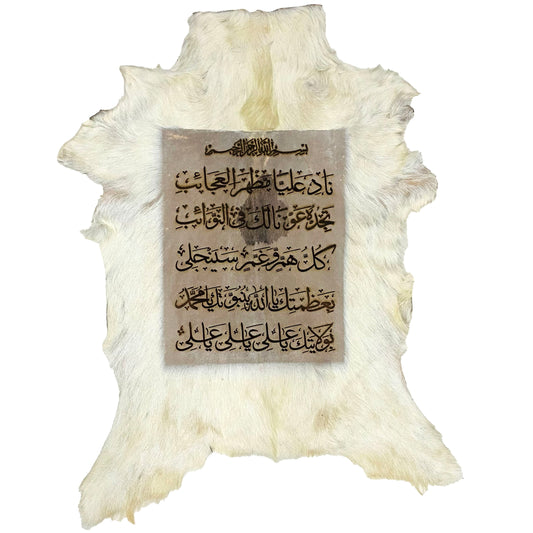 بسم الله الرحمن الرحيم
ناد عليًا مظهر العجائب
تجده عونًا لك في النوائب
كل هم وغم سينجلي
بعظمتك يا الله بنبوتك يا محمد
بولايتك يا علي يا علي يا علي